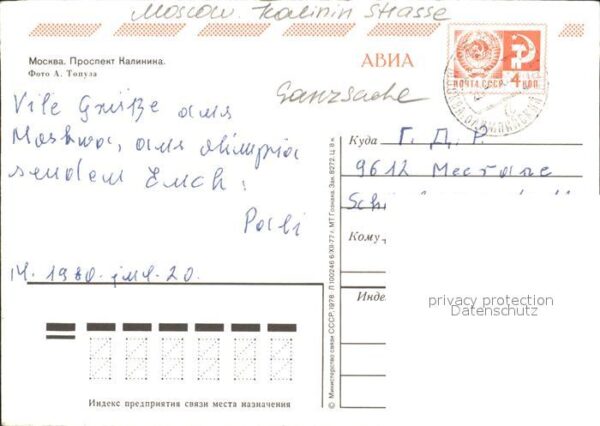 Moscow Kalinin Strasse
Москва. Проспект Калинина.
Фото А. Топуза
АВИА
ПОЧТА СССР 4 КОП
Ganzsache
Vile Grüße aus
Moskwa, aus olimpia
sendem Euch:
M. 1980. jul. 20.
Куда Г. Д. Р.
9612 Meerane
Кому
Инде
privacy protection
Datenschutz
© Министерство связи СССР, 1978 Л 100246 6/XII-77 г. МТ Гознака. Зак. 8272. Ц. 8 к.
Индекс предприятия связи места назначения